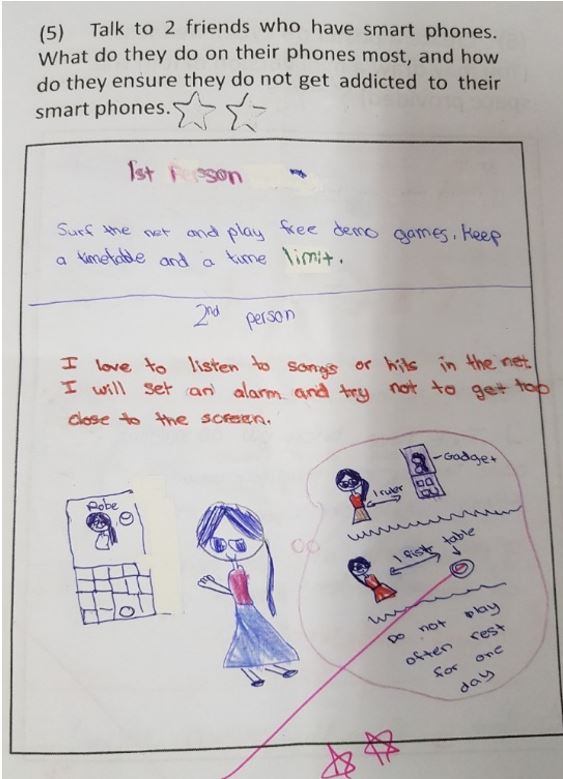 (5) Talk to 2 friends who have smart phones.
What do they do on their phones most, and how
do they ensure they do not get addicted to their
smart phones.
1st Person
Surf the net and play free demo games. Keep
a timetable and a time limit.
2nd person
I love to listen to songs or hits in the net.
I will set an alarm and try not to get too
close to the screen.
Robe
Gadget
1 ruler
table
Do not play
often rest
for one
day